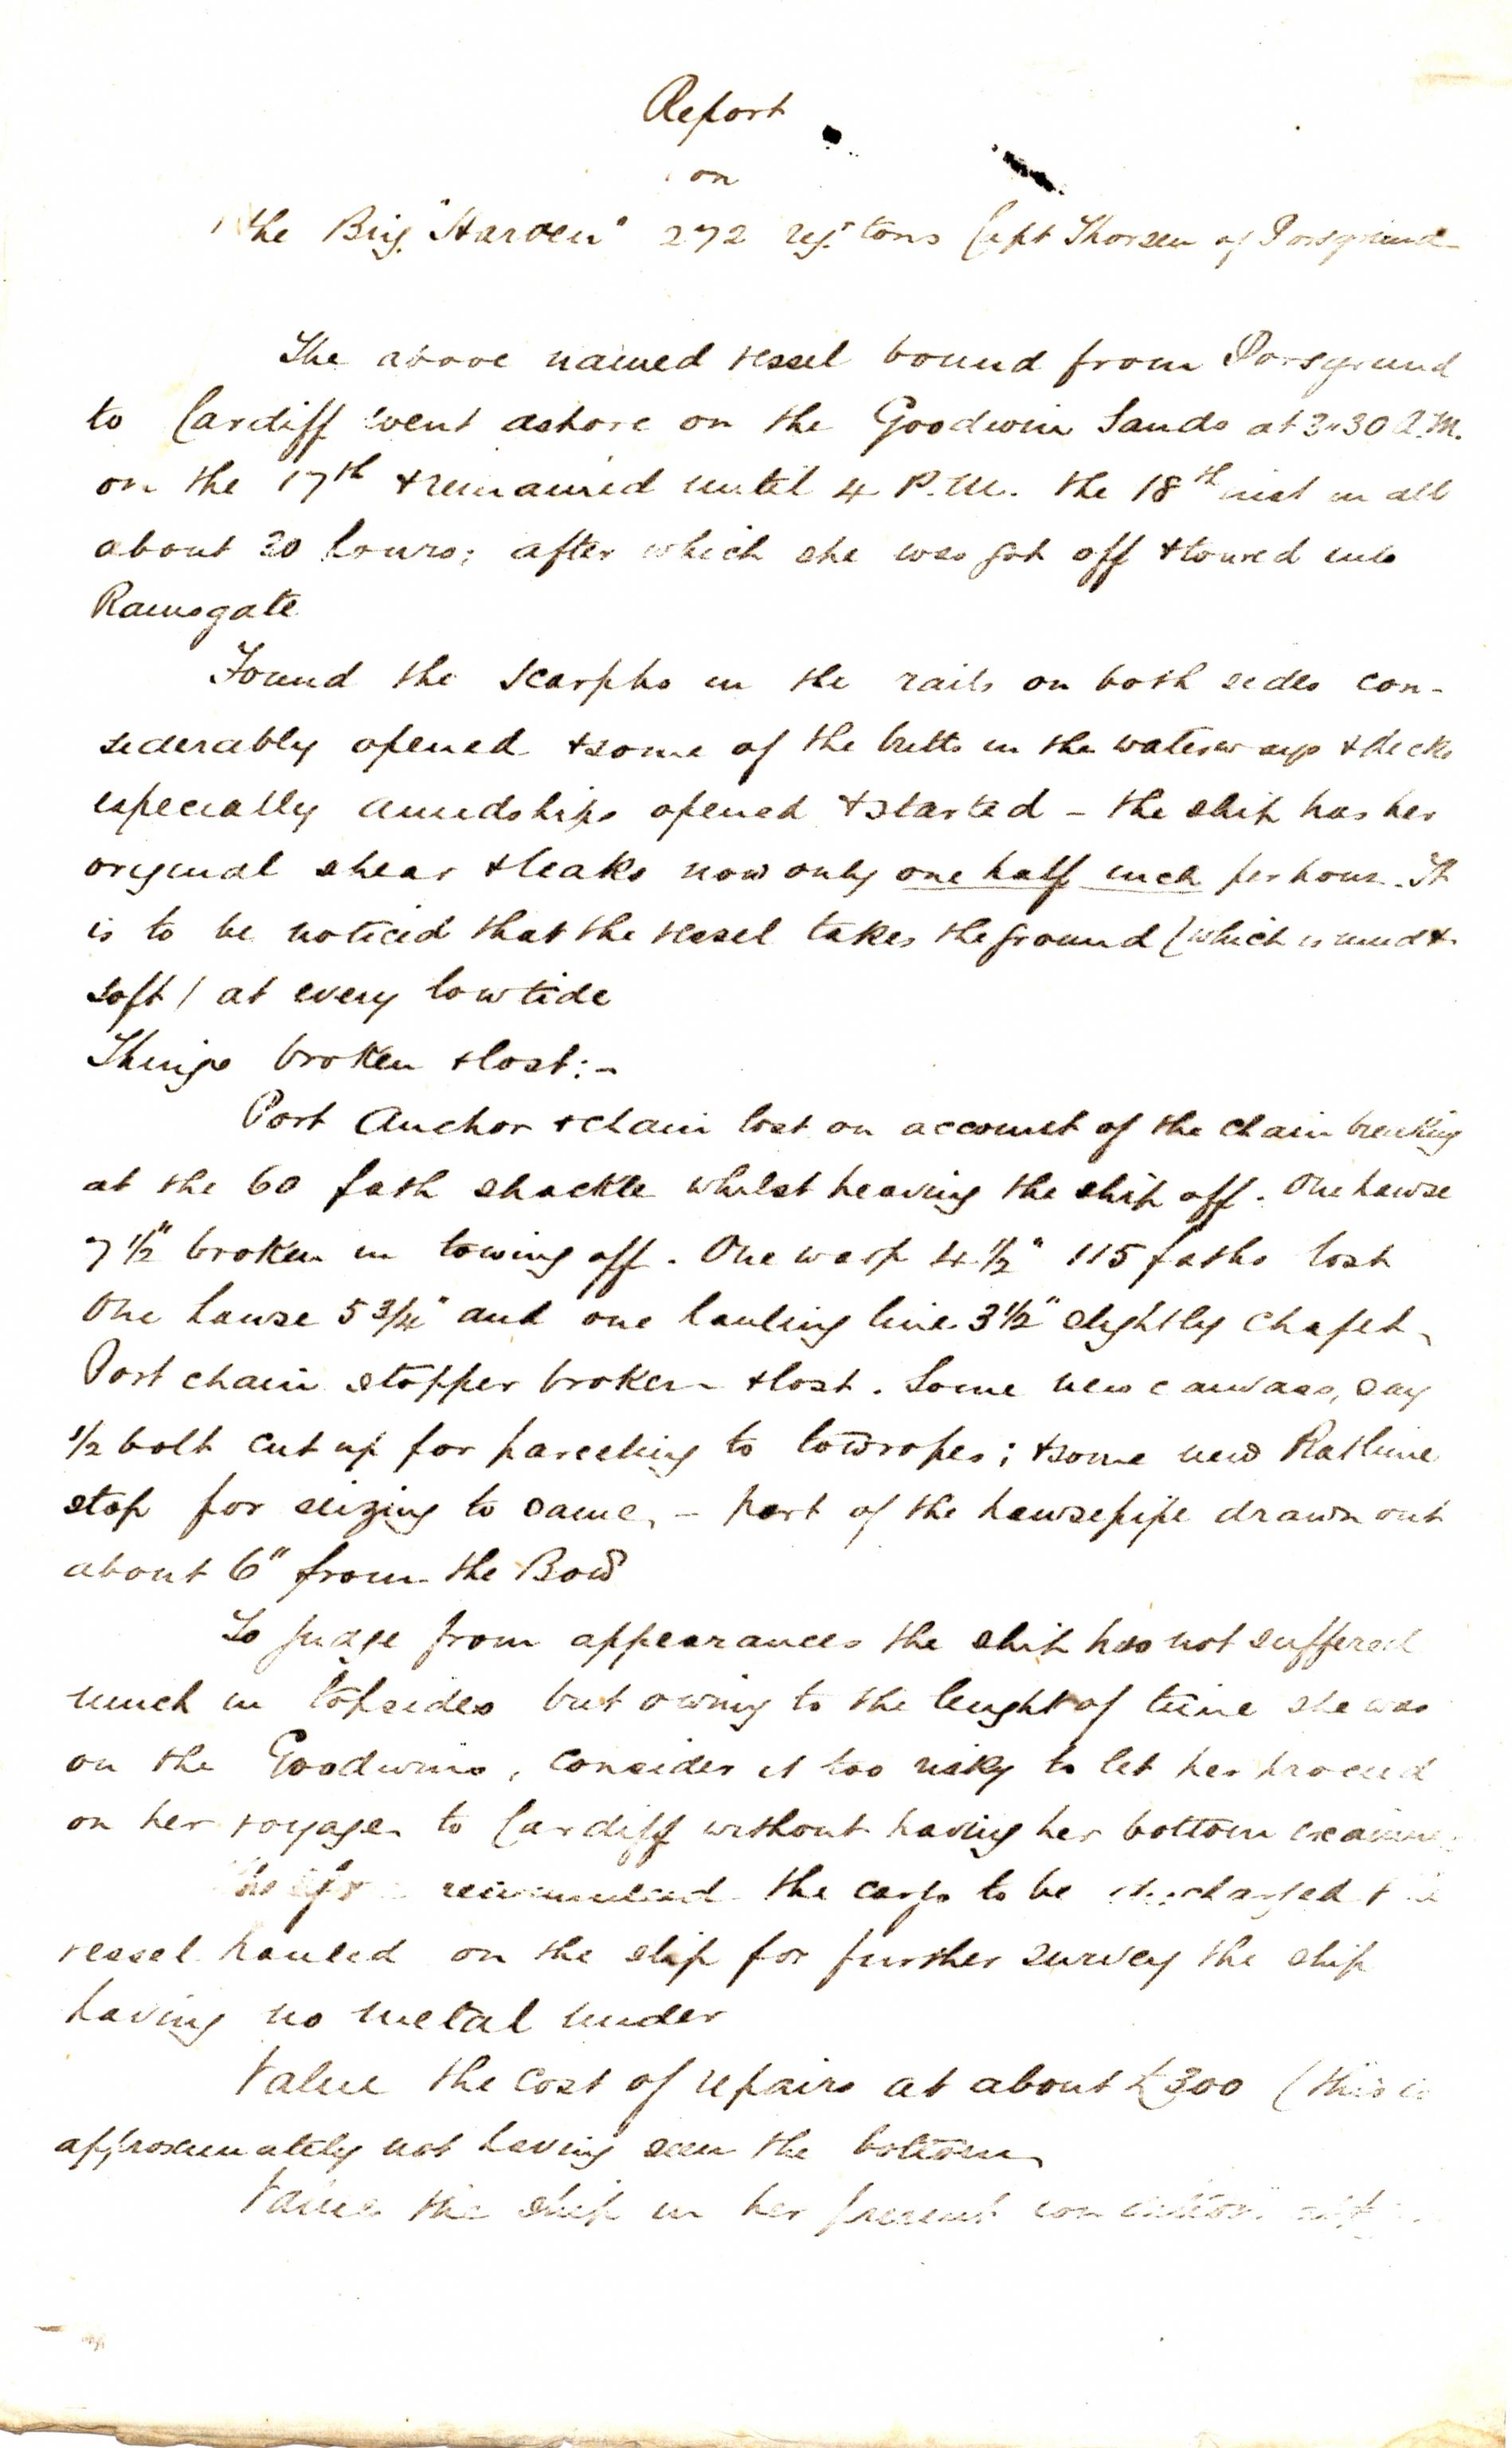 Report
on
the Brig "Harven" 272 regt tons Capt Thorsen of Porsgrund
The above named vessel bound from Porsgrund
to Cardiff went ashore on the Goodwin Sands at 3"30 A.M.
on the 17th & remained until 4 P.M. the 18th inst in all
about 30 hours; after which she was got off & towed into
Ramsgate
Found the scarphs in the rails on both sides con-
siderably opened & some of the butts in the waterways & decks
especially amidships opened & started - the ship has her
original shear & leaks now only one half inch per hour. It
is to be noticed that the vessel takes the ground (which is mud &
soft) at every low tide
Things broken & lost:-
Port Anchor & chain lost on account of the chain breaking
at the 60 fath shackle whilst heaving the ship off. One hawse
7 1/2" broken in towing off. One warp 4 1/2" 115 faths lost
One hawse 5 3/4" and one hauling line 3 1/2" slightly chafed,
Port chain stopper broken & lost. Some new canvass, say
1/2 bolt cut up for parcelling to towropes; & some new Ratline
stop for seizing to same, - part of the hawsepipe drawn out
about 6" from the Bow
To judge from appearances the ship has not suffered
much in topsides but owing to the lenght of time she was
on the Goodwins, consider it too risky to let her proceed
on her voyage to Cardiff without having her bottom
recommend the cargo to be discharged &
vessel hauled on the slip for further survey the ship
having no metal under
Value the cost of repairs at about £300 (this is
approximately not having seen the bottom
Value the ship in her present condition at